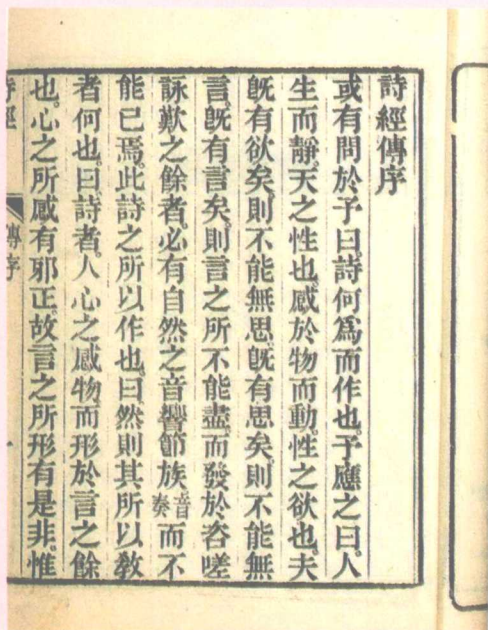 詩經傳序
或有問於予曰。詩何爲而作也。予應之曰。人
生而靜。天之性也。感於物而動。性之欲也。夫
旣有欲矣。則不能無思。旣有思矣。則不能無
言。旣有言矣。則言之所不能盡。而發於咨嗟
詠歎之餘者。必有自然之音響節族音奏而不
能已焉。此詩之所以作也。曰。然則其所以敎
者何也。曰。詩者。人心之感物。而形於言之餘
也。心之所感有邪正。故言之所形有是非。惟
詩經 傳序 一